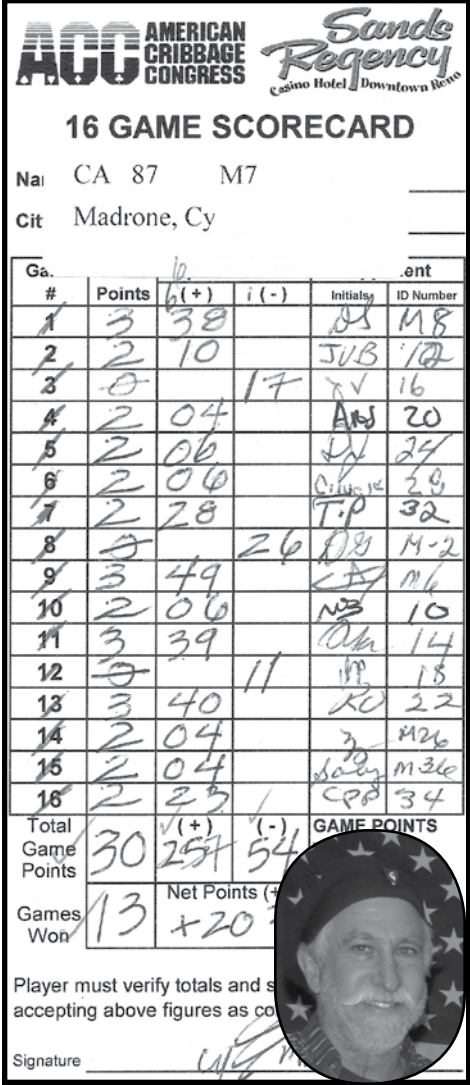 ACC AMERICAN CRIBBAGE CONGRESS
Sands Regency
Casino Hotel Downtown Reno
16 GAME SCORECARD
Na CA 87 M7
Cit Madrone, Cy
Ga ent
# Points (+) (-) Initials ID Number
1 3 38 M8
2 2 10 JVB
3 0 17 16
4 2 04 20
5 2 06 24
6 2 06 28
7 2 28 T.P 32
8 0 26 DG M-2
9 3 49 M6
10 2 06 10
11 3 39 14
12 0 11 18
13 3 40 KO 22
14 2 04 M26
15 2 04 M36
16 2 23 CPP 34
Total Game Points 30 (+) 257 (-) 54 GAME POINTS
Games Won 13 Net Points (+ +20
Player must verify totals and s
accepting above figures as co
Signature